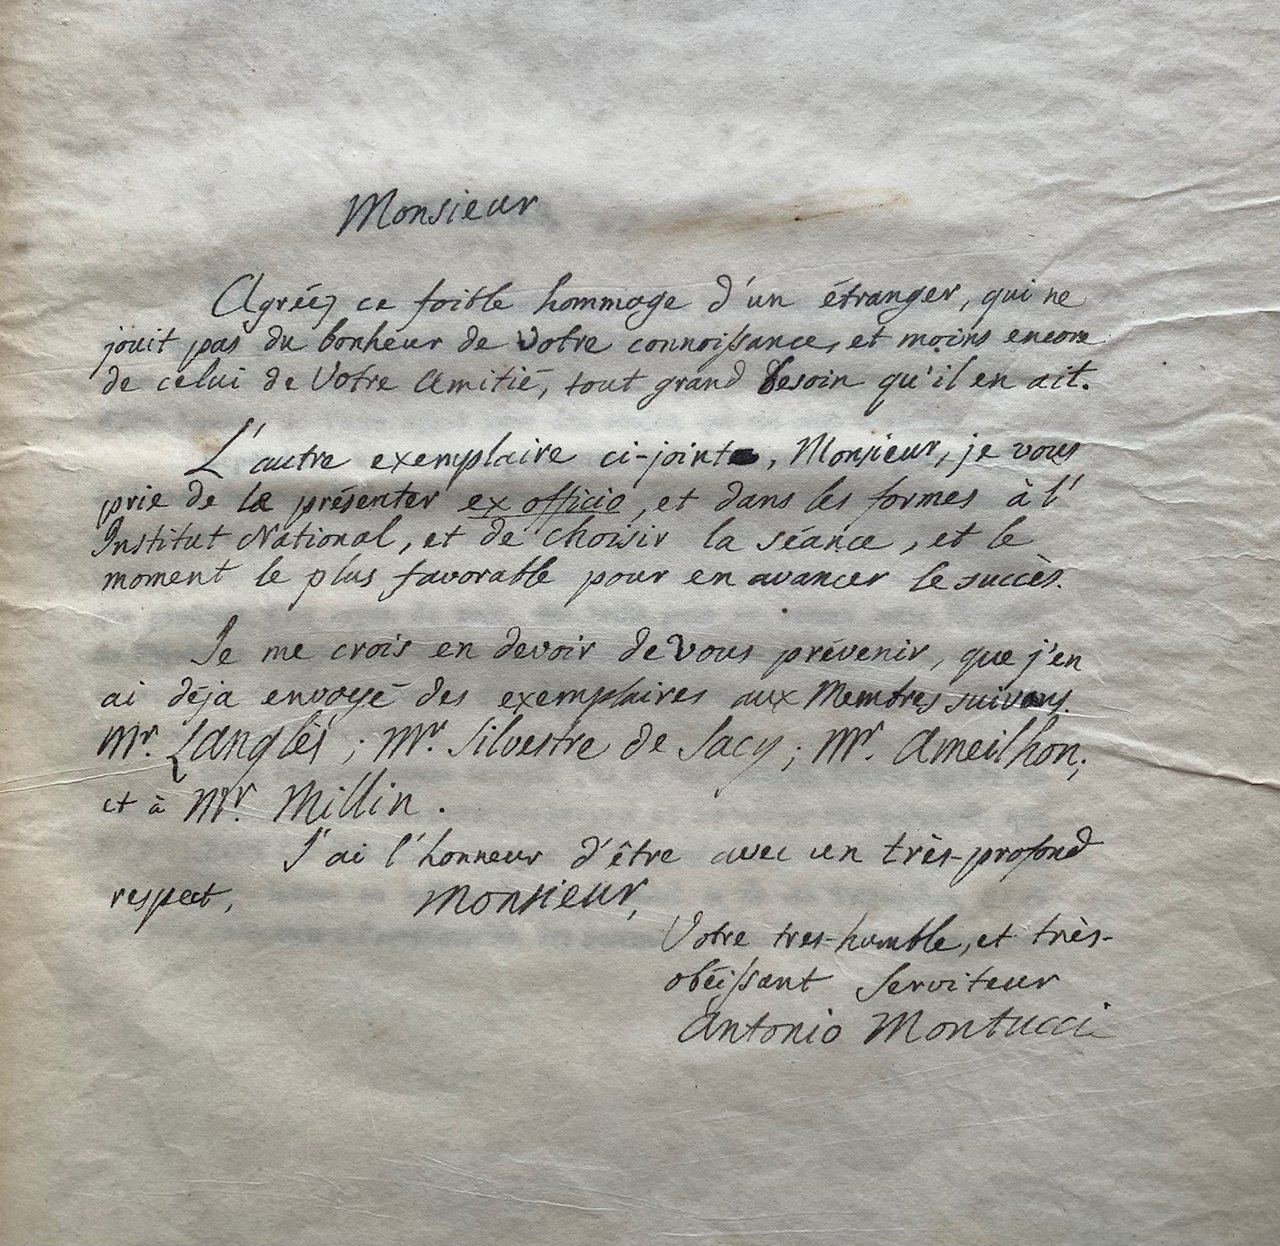 Monsieur
Agréez ce foible hommage d'un étranger, qui ne
jouit pas du bonheur de Votre connoissance, et moins encore
de celui de Votre Amitié, tout grand besoin qu'il en ait.
L'autre exemplaire ci-joint, Monsieur, je vous
prie de le présenter ex officio, et dans les formes à l'
Institut National, et de choisir la séance, et le
moment le plus favorable pour en avancer le succès.
Je me crois en devoir de Vous prévenir, que j'en
ai déja envoyé des exemplaires aux Membres suivans.
Mr. Langlés; Mr. Silvestre de Sacy; Mr. Ameilhon;
et à Mr. Millin.
J'ai l'honneur d'être avec un très-profond
respect, Monsieur,
Votre tres-humble, et très-
obéissant Serviteur
Antonio Montucci